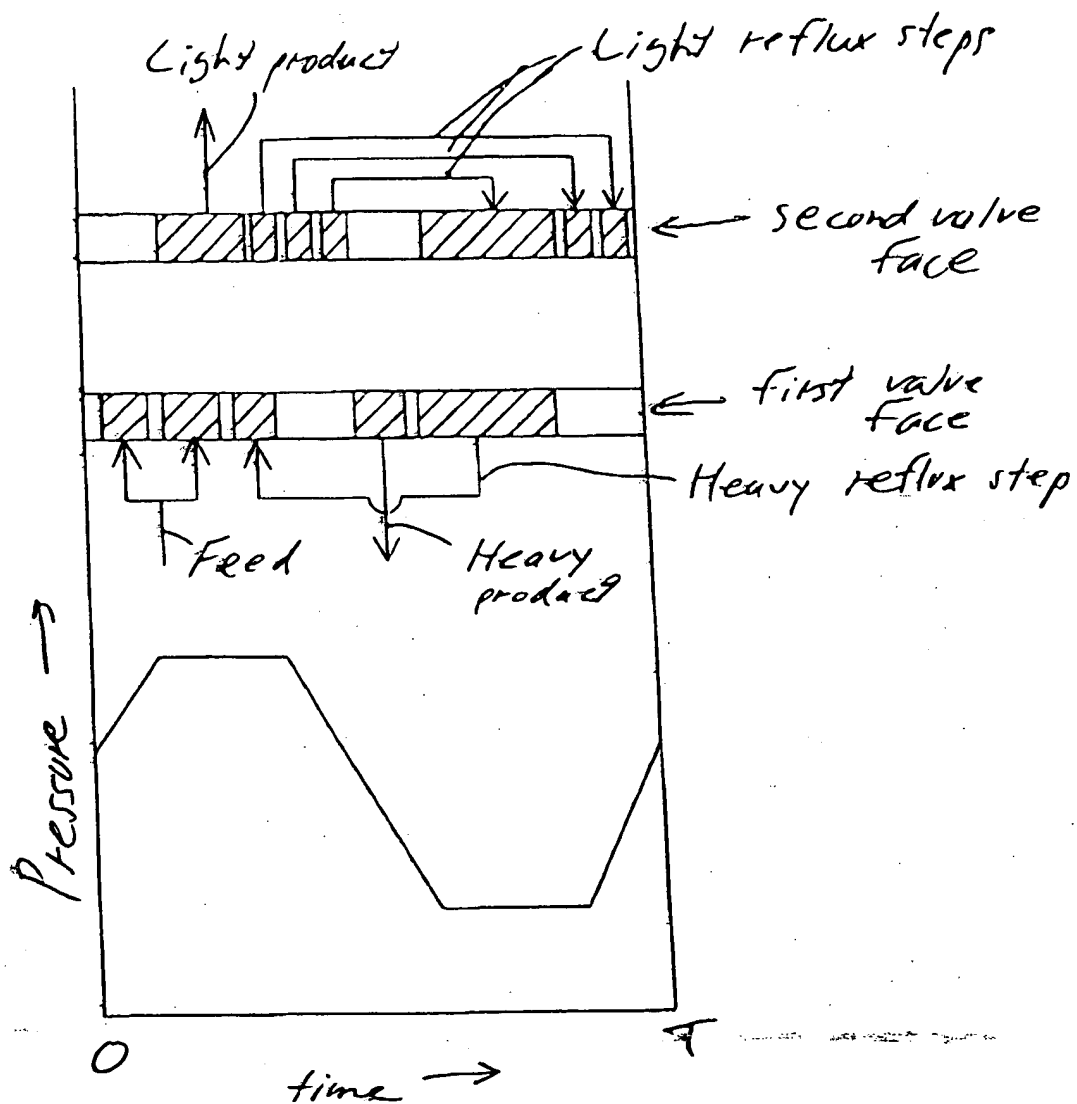 Light product
Light reflux steps
second valve
face
first valve
face
Heavy reflux step
Feed
Heavy
product
Pressure
O
T
time